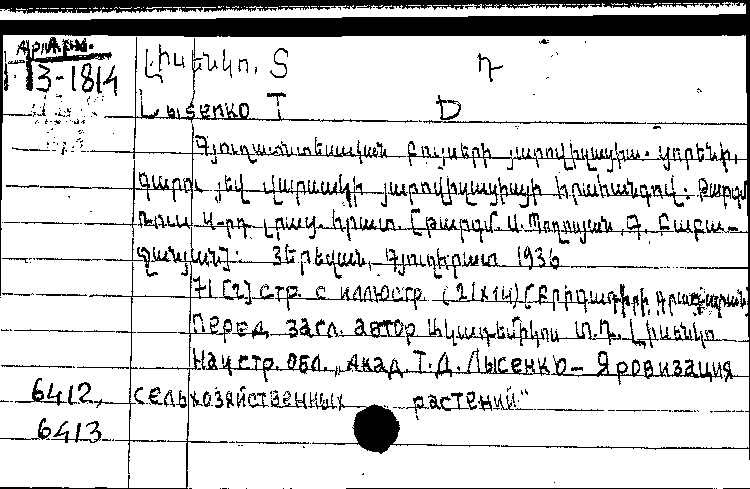 Арм.
3-1814
Լիսենկո, Տ Դ
Lыsenko T D
Գյուղատնտեսական բույսերի յարովիզացիա. ցորենի,
գարու յեվ վարսակի յարովիզացիայի հրահանգով. Թարգմ.
ռուս 4-րդ լրաց. հրատ. [թարգմ. Ա. Պողոսյան, Գ. Բաբա-
ջանյան]: Յերեվան, Գյուղհրատ 1936
71 [2] стр. с иллюстр. (21x14)
Перед загл. автор Ակադեմիկոս Տ. Դ. Լիսենկո
На 4 стр. обл. „Акад. Т. Д. Лысенко – Яровизация
сельхозяйственных растений"
6412,
6413